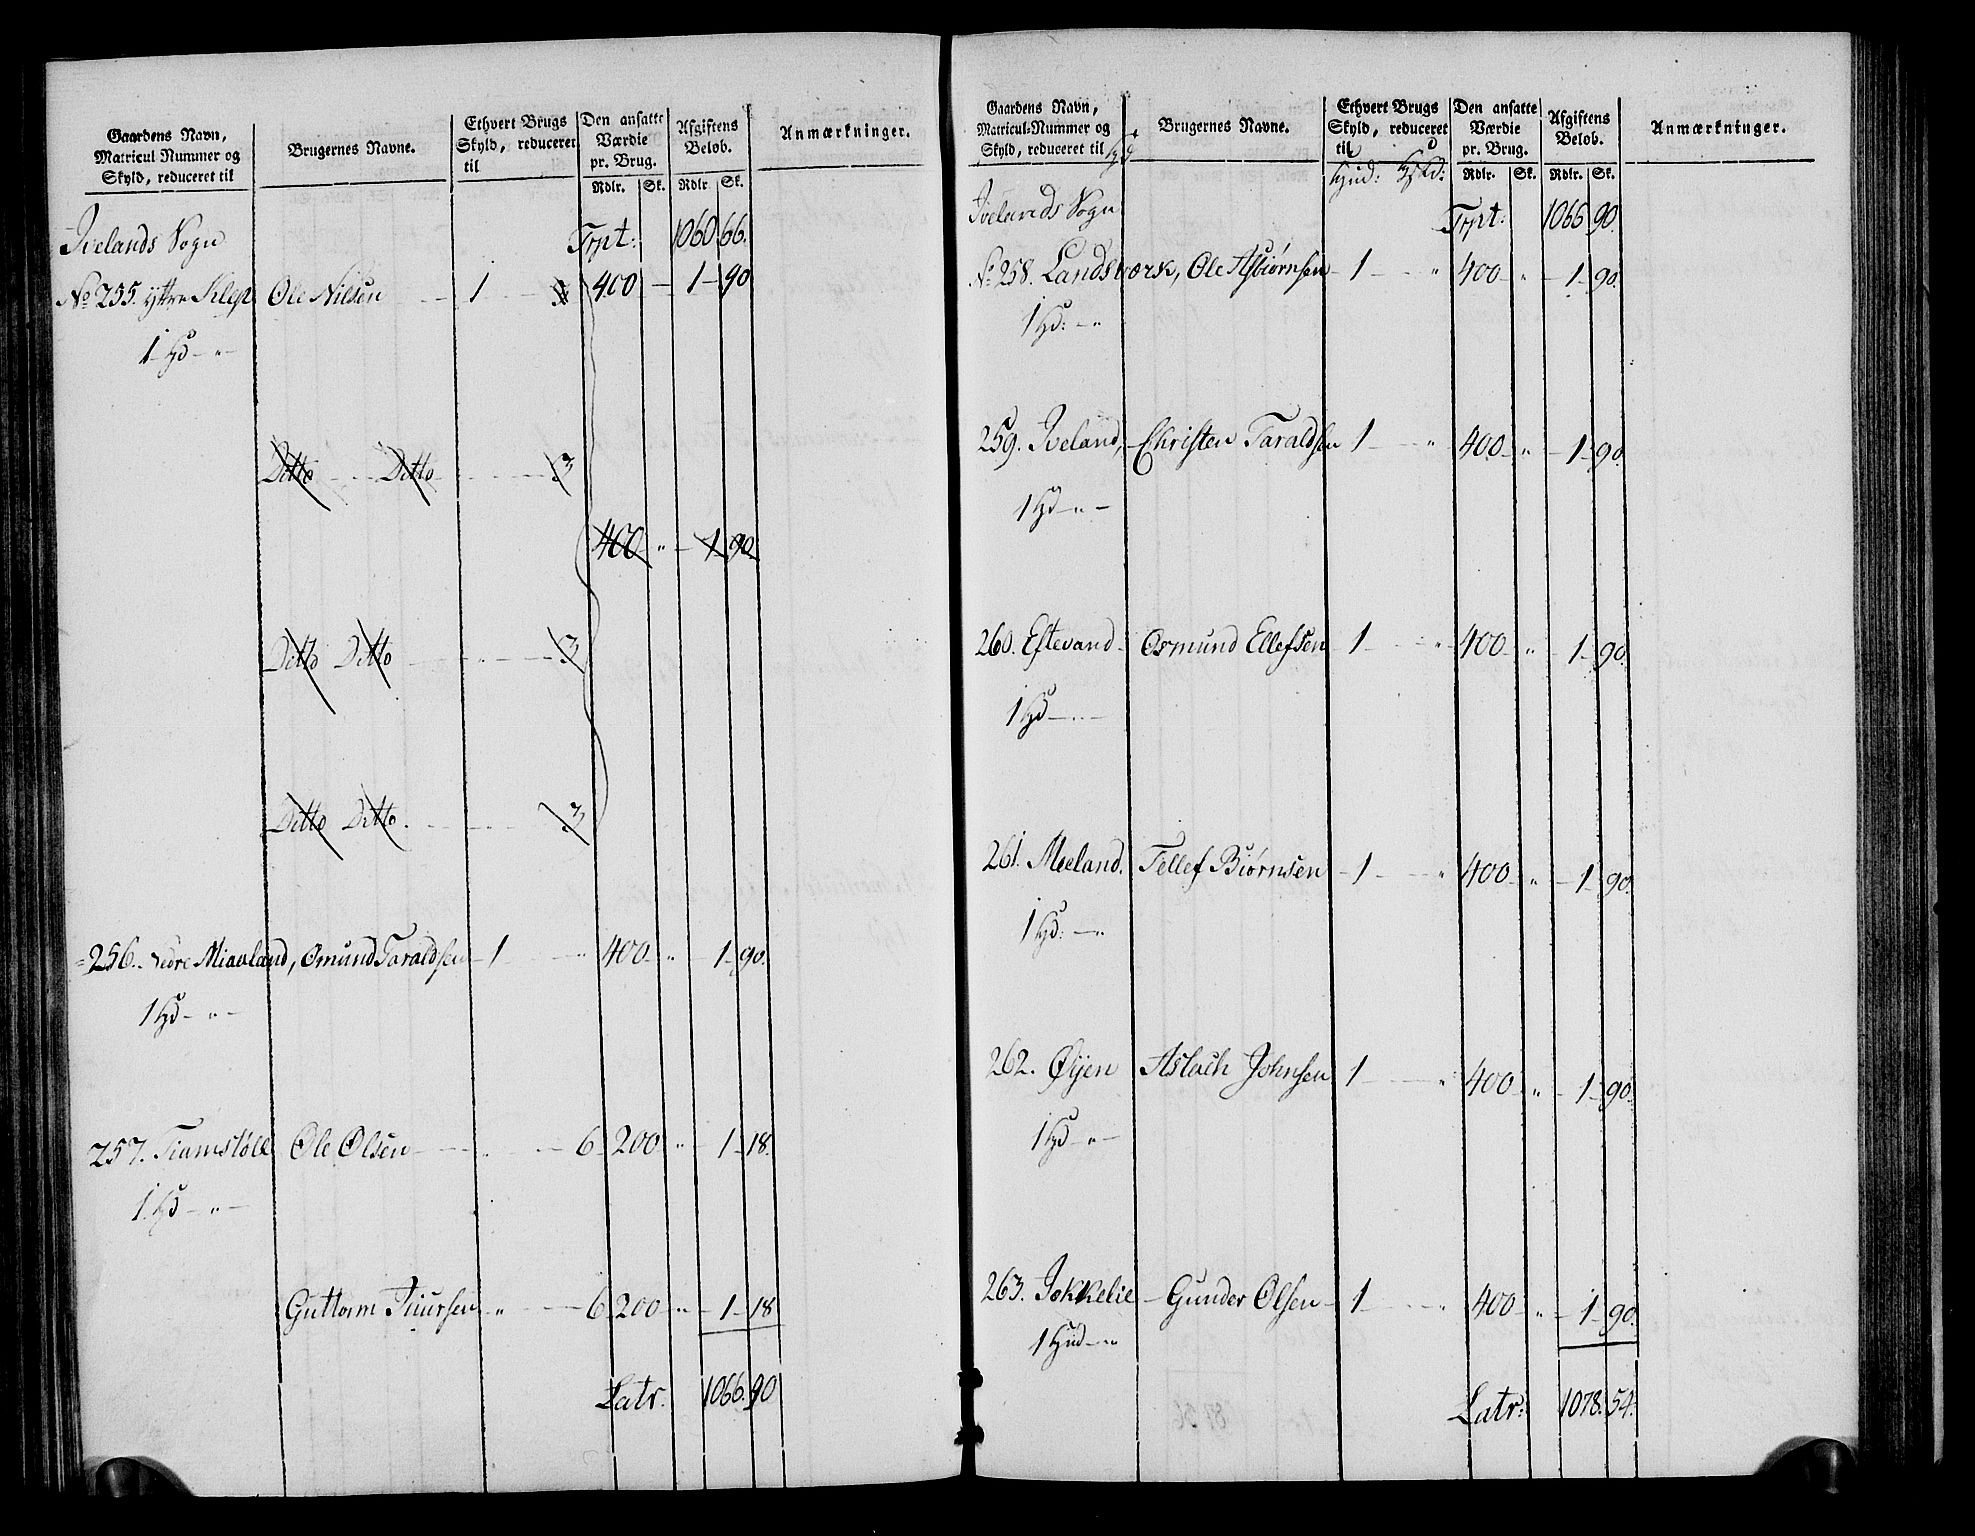 Gaardens Navn, Matricul Nummer og Skyld, reduceret til | Brugernes Navne. | Ethvert Brugs Skyld, reduceret til | Den ansatte Værdie pr. Brug. Rdlr. Sk. | Afgiftens Beløb. Rdlr. Sk. | Anmærkninger.
Ivelands Sogn Trpt: 1060 66.
No 255. yttre Klep Ole Nilsen 1 400 1 90
1 Hd "
Ditto Ditto 3
400 " 1 90
Ditto Ditto 3
Ditto Ditto 3
256. Nedre Miavland, Omund Taraldsen 1 " 400 " 1 90.
1 Hd "
257. Tiamstøll Ole Olsen " 6 200 " 1 18.
1 Hd "
Guttorm Tiursen " 6 200 " 1 18
Latr. 1066. 90
Gaardens Navn, Matricul-Nummer og Skyld, reduceret til Hd | Brugernes Navne. | Ethvert Brugs Skyld, reduceret til Hud: | Den ansatte Værdie pr. Brug. Rdlr. Sk. | Afgiftens Beløb. Rdlr. Sk. | Anmærkninger.
Ivelands Sogn Trpt: 1066 90.
No 258. Landsværk, Ole Asbiørnsen 1 " 400 " 1 90.
1 Hd: "
259. Iveland, Christen Taraldsen 1 " 400 " 1 90.
1 Hd "
260. Eftevand Osmund Ellefsen 1 " 400 " 1 90.
1 Hd "
261. Meeland. Tellef Biørnsen 1 " 400 " 1 90.
1 Hd: "
262. Øyen Aslach Johnsen 1 " 400 " 1 90.
1 Hd "
263. Jokkelie Gunder Olsen 1 " 400 " 1 90.
1 Hud "
Latr: 1078. 54.